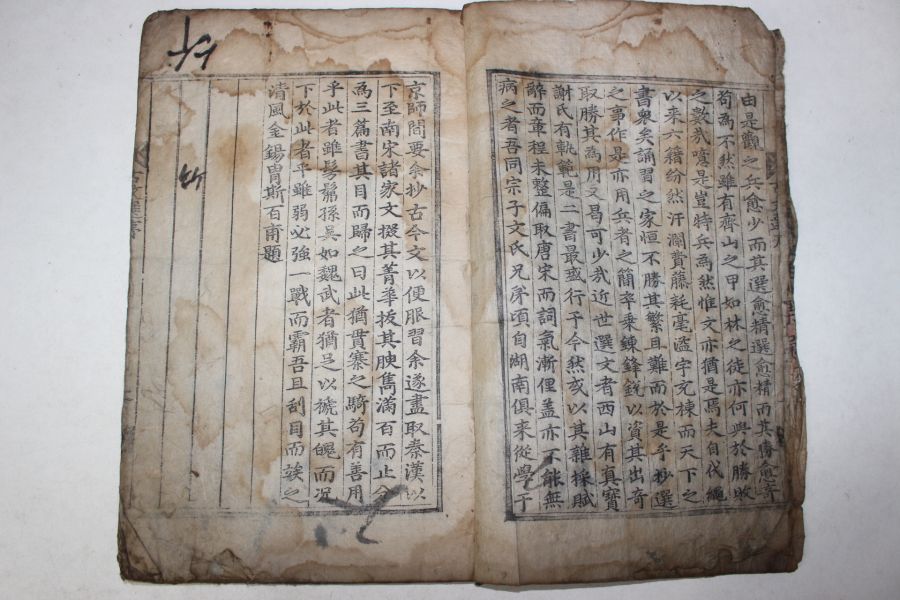 由是觀之兵愈少而其選愈精選愈精而其傳愈奇
苟爲不然雖有齊山之甲如林之徒亦何與於勝敗
之數哉噫是豈特兵爲然惟文亦猶是焉夫自代繩
以來六籍紛然汗瀾賁藤耗毫溢宇充棟而天下之
書衆矣誦習之家恒不勝其繁且難而於是乎抄選
之事作是亦用兵者之簡卒乘鍊鋒銳以資其出奇
取勝其爲用又曷可少哉近世選文者西山有眞寶
謝氏有軌範是二書最盛行于今然或以其雜採賦
辭而章程未整偏取唐宋而詞氣漸俚盖亦不能無
病之者吾同宗子文氏兄弟頃自湖南俱來從學于
京師間要余抄古今文以便服習余遂盡取秦漢以
下至南宋諸家文掇其菁華拔其腴雋滿百而止分
爲三篇書其目而歸之曰此猶貫寨之騎苟有善用
乎此者雖髣髴孫吳如魏武者猶足以褫其魄而况
下於此者乎雖弱必強一戰而霸吾且刮目而竢之
清風金錫胄斯百甫題